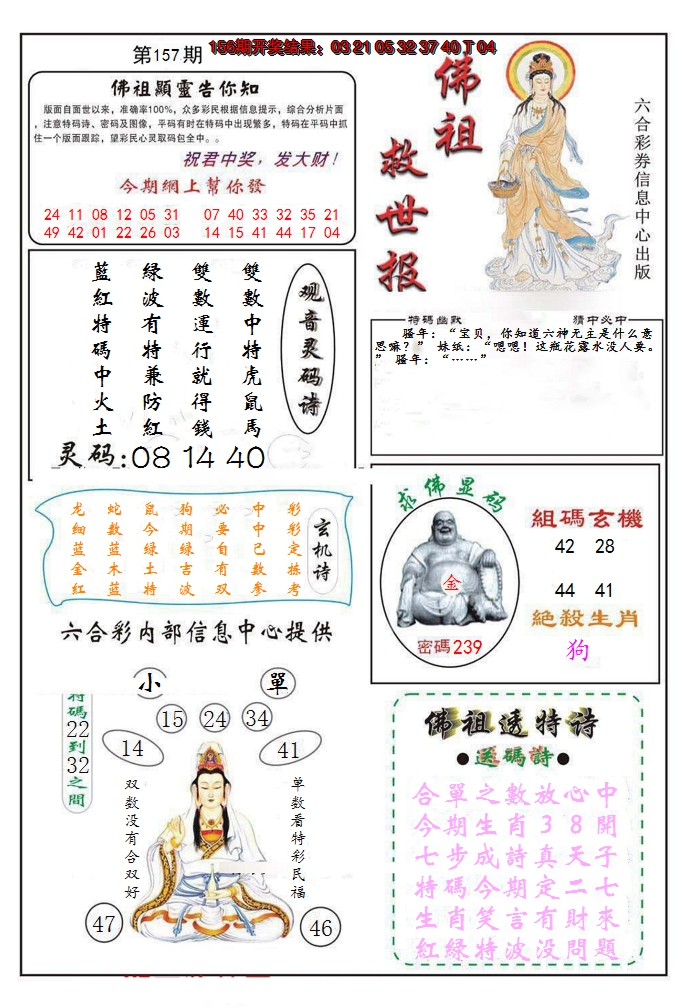 第157期
156期开奖结果：03 21 05 32 37 40 T 04
佛祖顯靈告你知
版面自面世以来，准确率100%，众多彩民根据信息提示，综合分析片面
，注意特码诗、密码及图像，平码有时在特码中出现繁多，特码在平码中抓
住一个版面跟踪，望彩民心灵取码包全中。。
祝君中奖，发大财！
今期網上幫你發
24 11 08 12 05 31 07 40 33 32 35 21
49 42 01 22 26 03 14 15 41 44 17 04
佛祖
救世报
六合彩券信息中心出版
观音灵码诗
雙數中特虎鼠馬
雙數運行就得錢
綠波有特兼防紅
藍紅特碼中火土
灵码:08 14 40
特碼幽默
猜中必中
骚年：“宝贝，你知道六神无主是什么意
思嘛？” 妹纸：“嗯嗯！这瓶花露水没人要。
” 骚年：“……”
玄机诗
彩彩定拣考
中中已数参
必要自有双
狗期绿吉波
鼠今绿土特
蛇数蓝木蓝
龙细蓝金红
六合彩内部信息中心提供
求佛显码
金
密碼239
組碼玄機
42 28
44 41
絶殺生肖
狗
小
單
特碼22到32之間
15
24
34
14
41
双数没有合双好
单数看特彩民福
47
46
佛祖透特诗
●送碼詩●
合單之數放心中
今期生肖38開
七步成詩真天子
特碼今期定二七
生肖笑言有財來
紅緑特波没問題